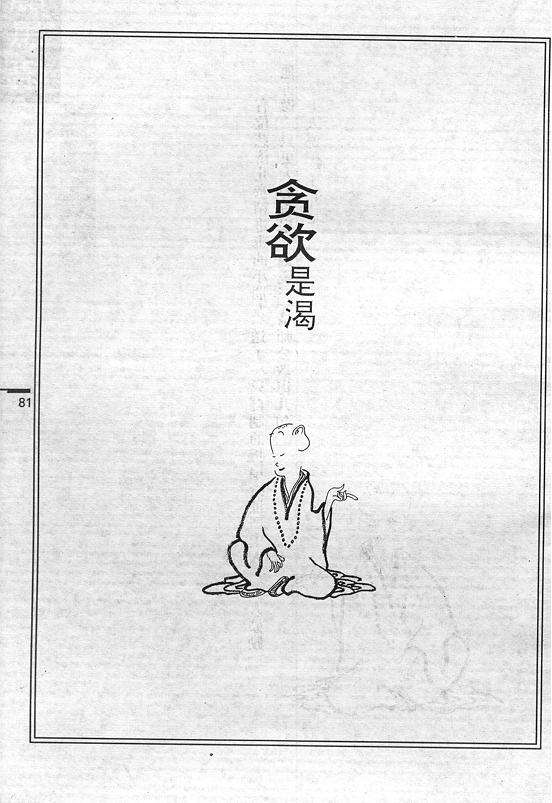 贪欲
是渴
81